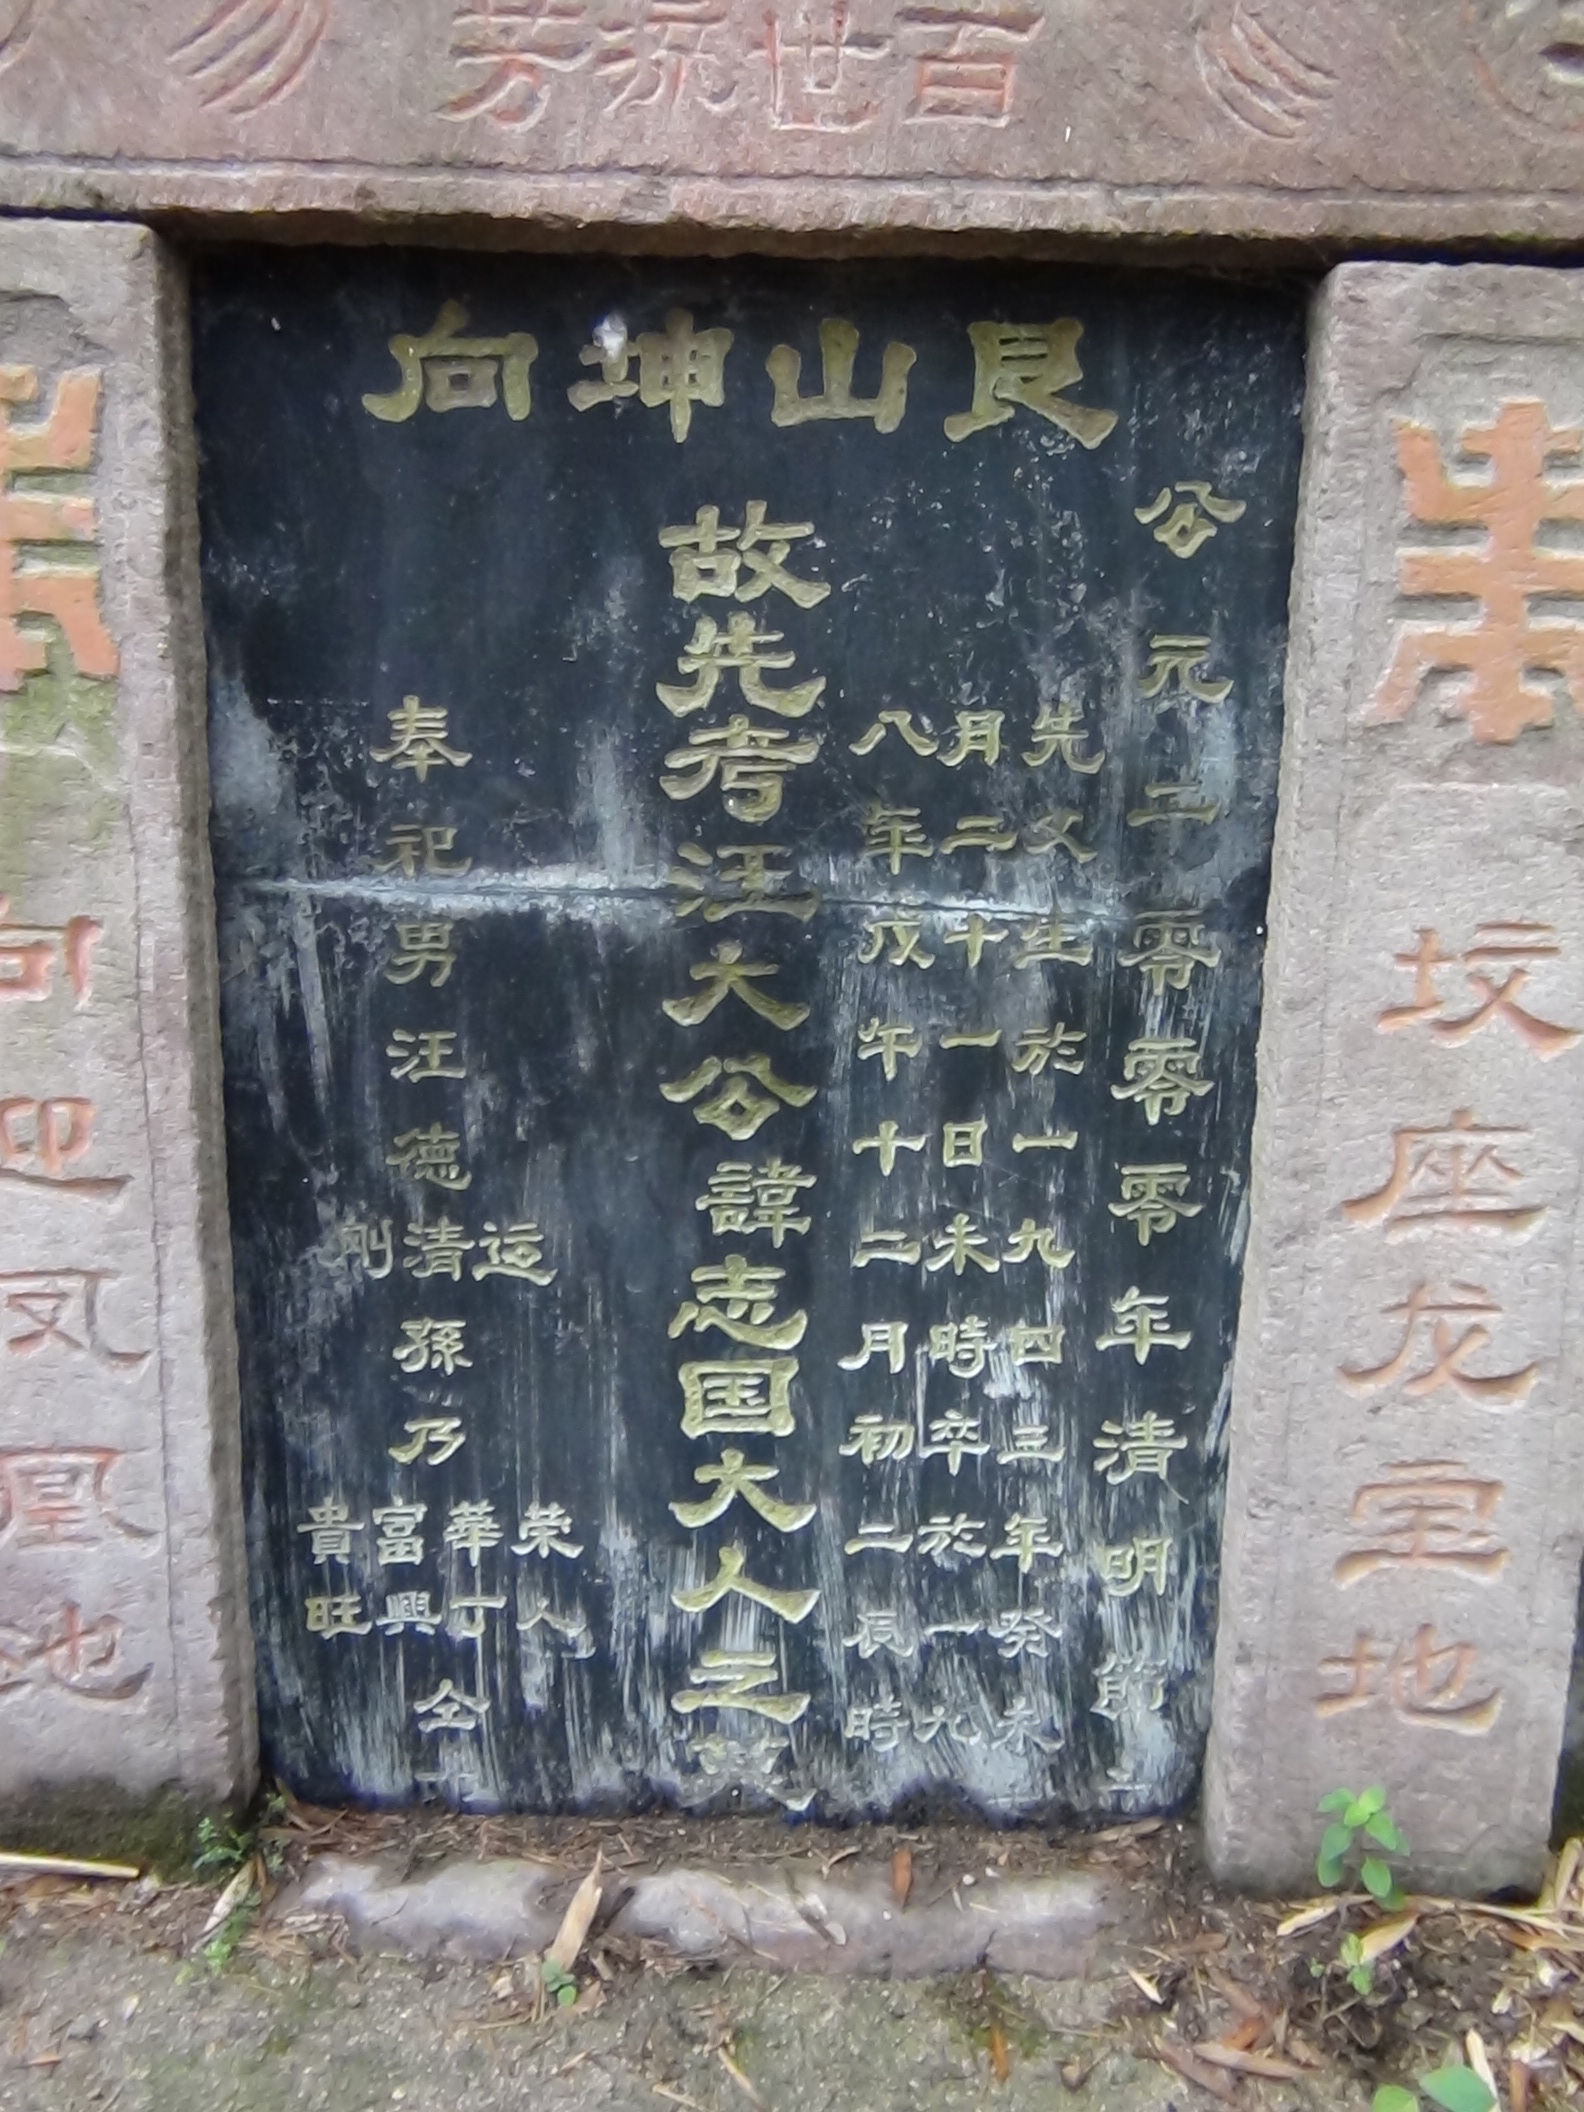 百世流芳
艮山坤向
公元二零零零年清明節立
先父生於一九四三年癸未
月二十一日未時卒於一九
八年戊午十二月初二辰時
故先考汪大公諱志国大人之墓
奉祀男汪德
运清刚
孫乃
荣華富貴
人丁興旺
仝立
坟座龙宝地
向迎凤凰地